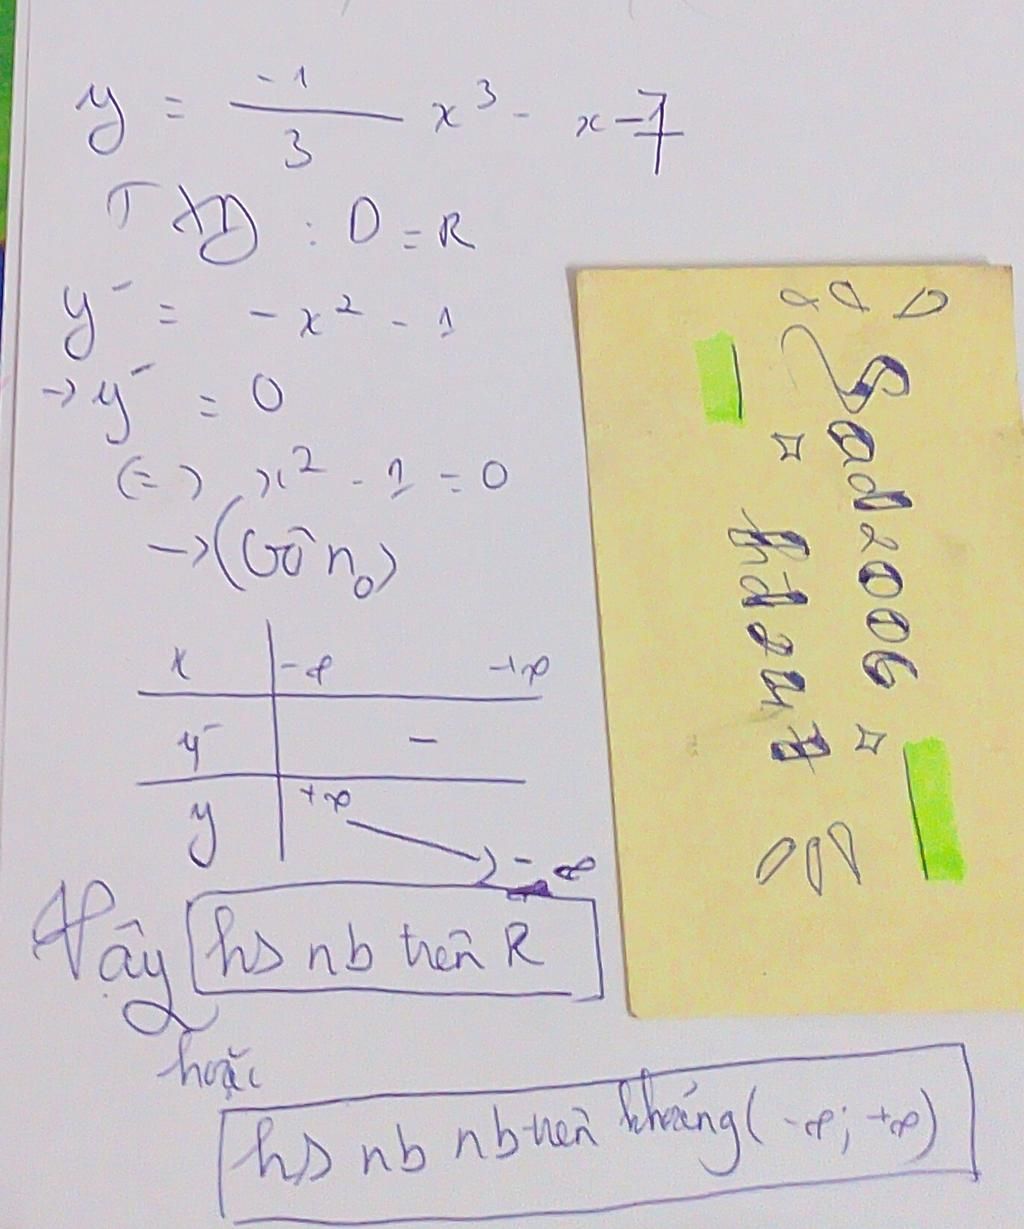 y = -1/3 x³ - x - 7
TXĐ : D = R
y' = -x² - 1
→ y' = 0
(=) x² - 1 = 0
→ (Vô n₀)
x -∞ +∞
y' -
y +∞ -∞
Vậy hs nb trên R
hoặc
hs nb nb trên khoảng (-∞; +∞)
Sad2006